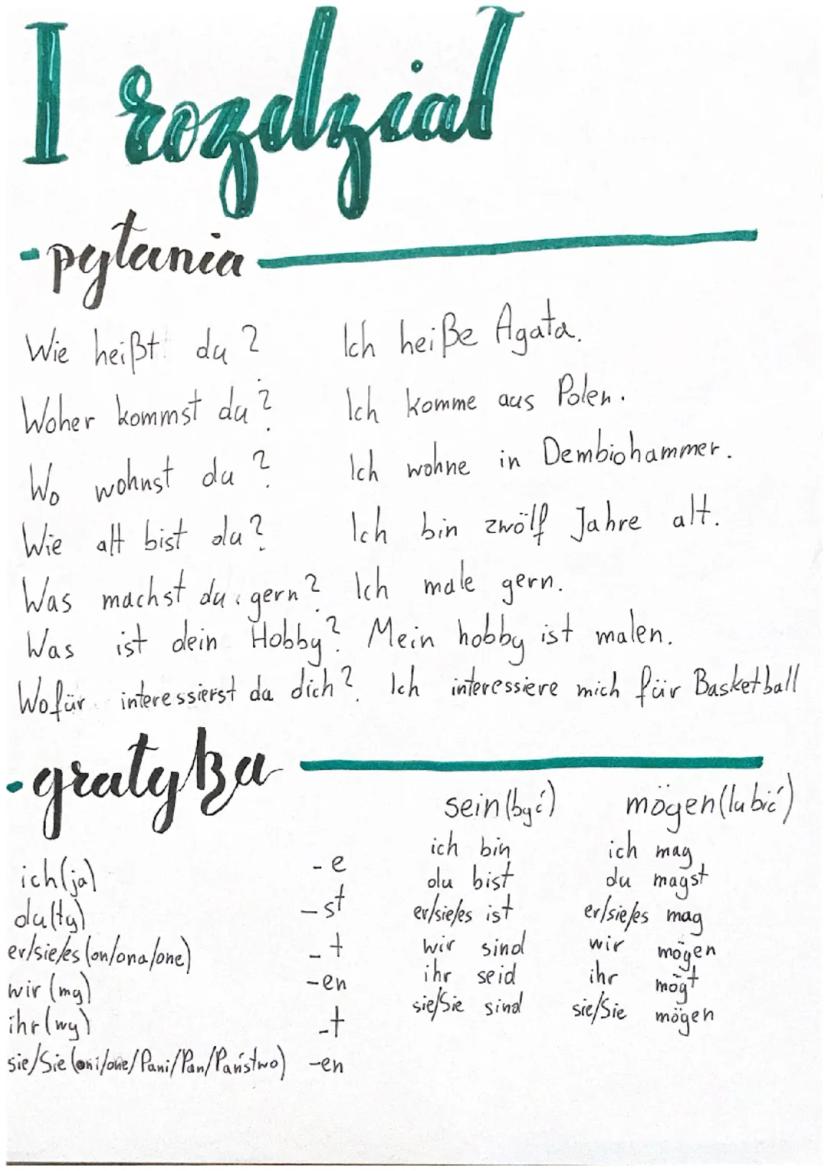 I rozdział
-pytania
Wie heißt du? Ich heiße Agata.
Woher kommst du? Ich komme aus Polen.
Wo wohnst du? Ich wohne in Dembiohammer.
Wie alt bist du? Ich bin zwölf Jahre alt.
Was machst du gern? Ich male gern.
Was ist dein Hobby? Mein hobby ist malen.
Wofür interessierst du dich? Ich interessiere mich für Basketball
-gratyka
sein (być) mögen (lubić)
ich bin ich mag
ich (ja) -e
du bist du magst
du (ty) -st
er/sie/es ist er/sie/es mag
er/sie/es (on/ona/one) -t
wir sind wir mögen
wir (my) -en
ihr seid ihr mögt
ihr (wy) -t
sie/Sie sind sie/Sie mögen
sie/Sie (oni/one/Pani/Pan/Państwo) -en